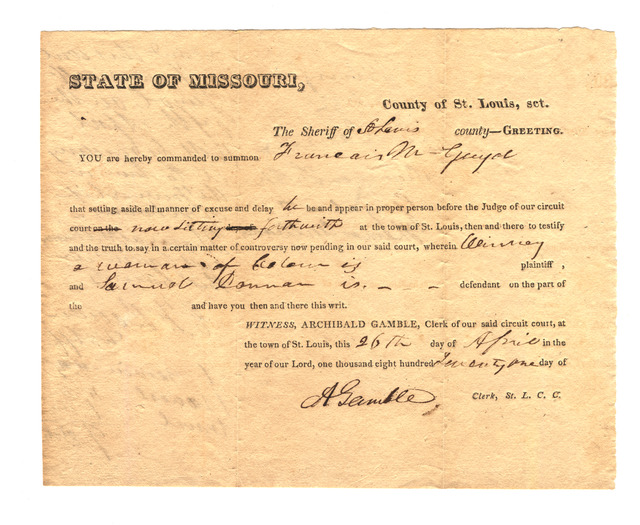 STATE OF MISSOURI,
County of St. Louis, sct.
The Sheriff of St Louis county—GREETING.
YOU are hereby commanded to summon Francais M
that setting aside all manner of excuse and delay he be and appear in proper person before the Judge of our circuit
court on the now sitting forthwith at the town of St. Louis, then and there to testify
and the truth to say in a certain matter of controversy now pending in our said court, wherein Winney
a woman of Colour is plaintiff,
and Samuel Donnan is - - - defendant on the part of
the and have you then and there this writ.
WITNESS, ARCHIBALD GAMBLE, Clerk of our said circuit court, at
the town of St. Louis, this 26th day of April in the
year of our Lord, one thousand eight hundred Twenty one day of
A Gamble Clerk, St. L. C. C.